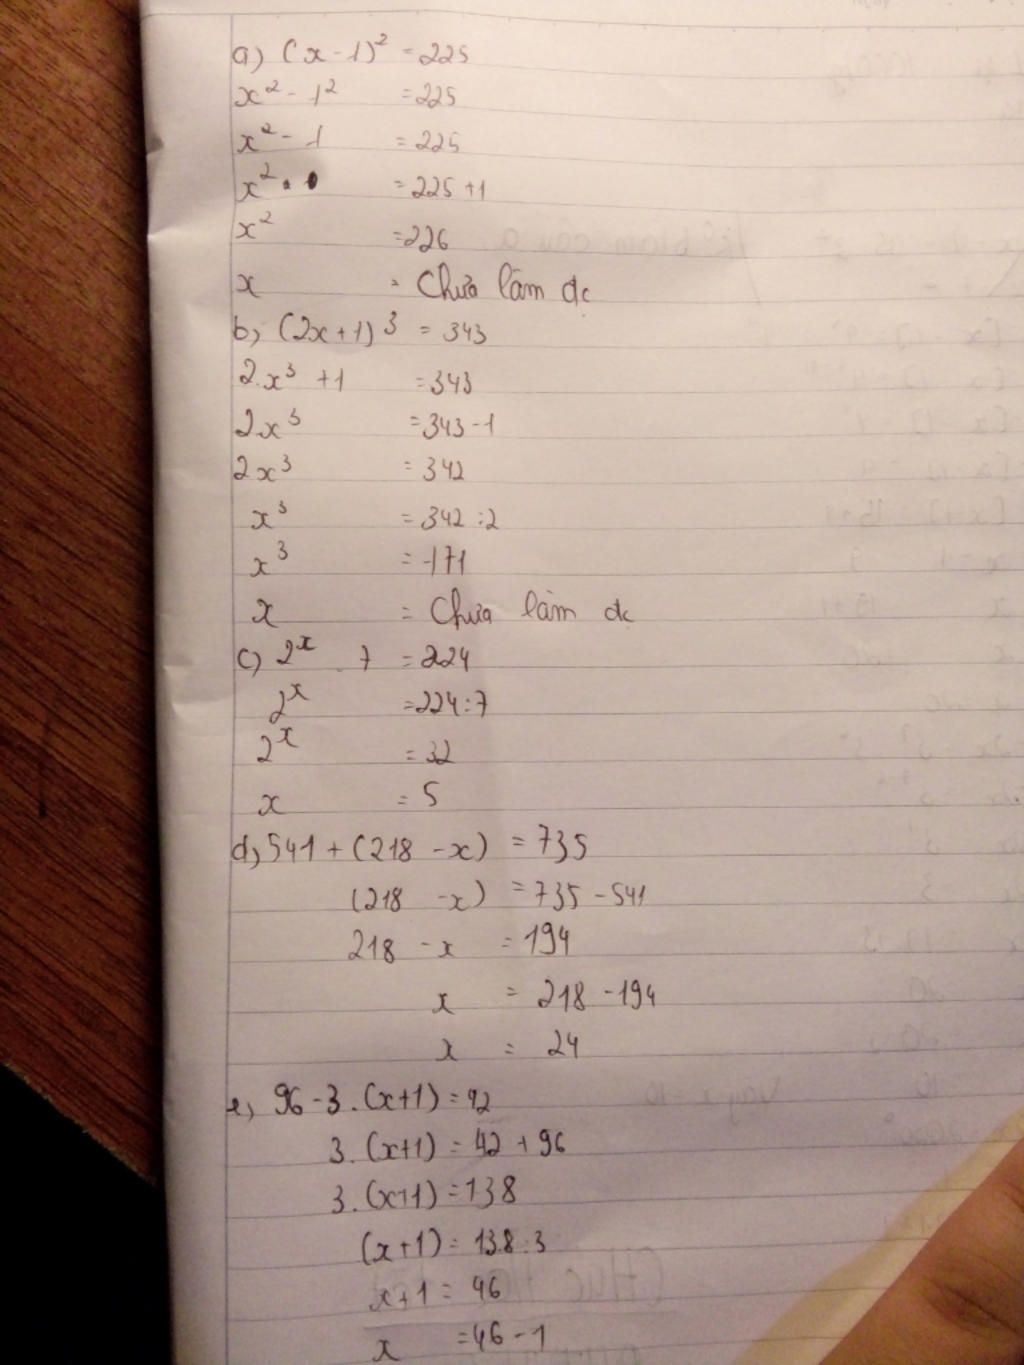 a) (x - 1)² = 225
x² - 1² = 225
x² - 1 = 225
x² = 225 + 1
x² = 226
x = Chưa làm đc
b, (2x + 1)³ = 343
2.x³ + 1 = 343
2x³ = 343 - 1
2x³ = 342
x³ = 342 : 2
x³ = 171
x = Chưa làm đc
c) 2ˣ . 7 = 224
2ˣ = 224 : 7
2ˣ = 32
x = 5
d, 541 + (218 - x) = 735
(218 - x) = 735 - 541
218 - x = 194
x = 218 - 194
x = 24
e, 96 - 3 . (x + 1) = 42
3 . (x+1) = 42 + 96
3 . (x+1) = 138
(x + 1) = 138 : 3
x + 1 = 46
x = 46 - 1